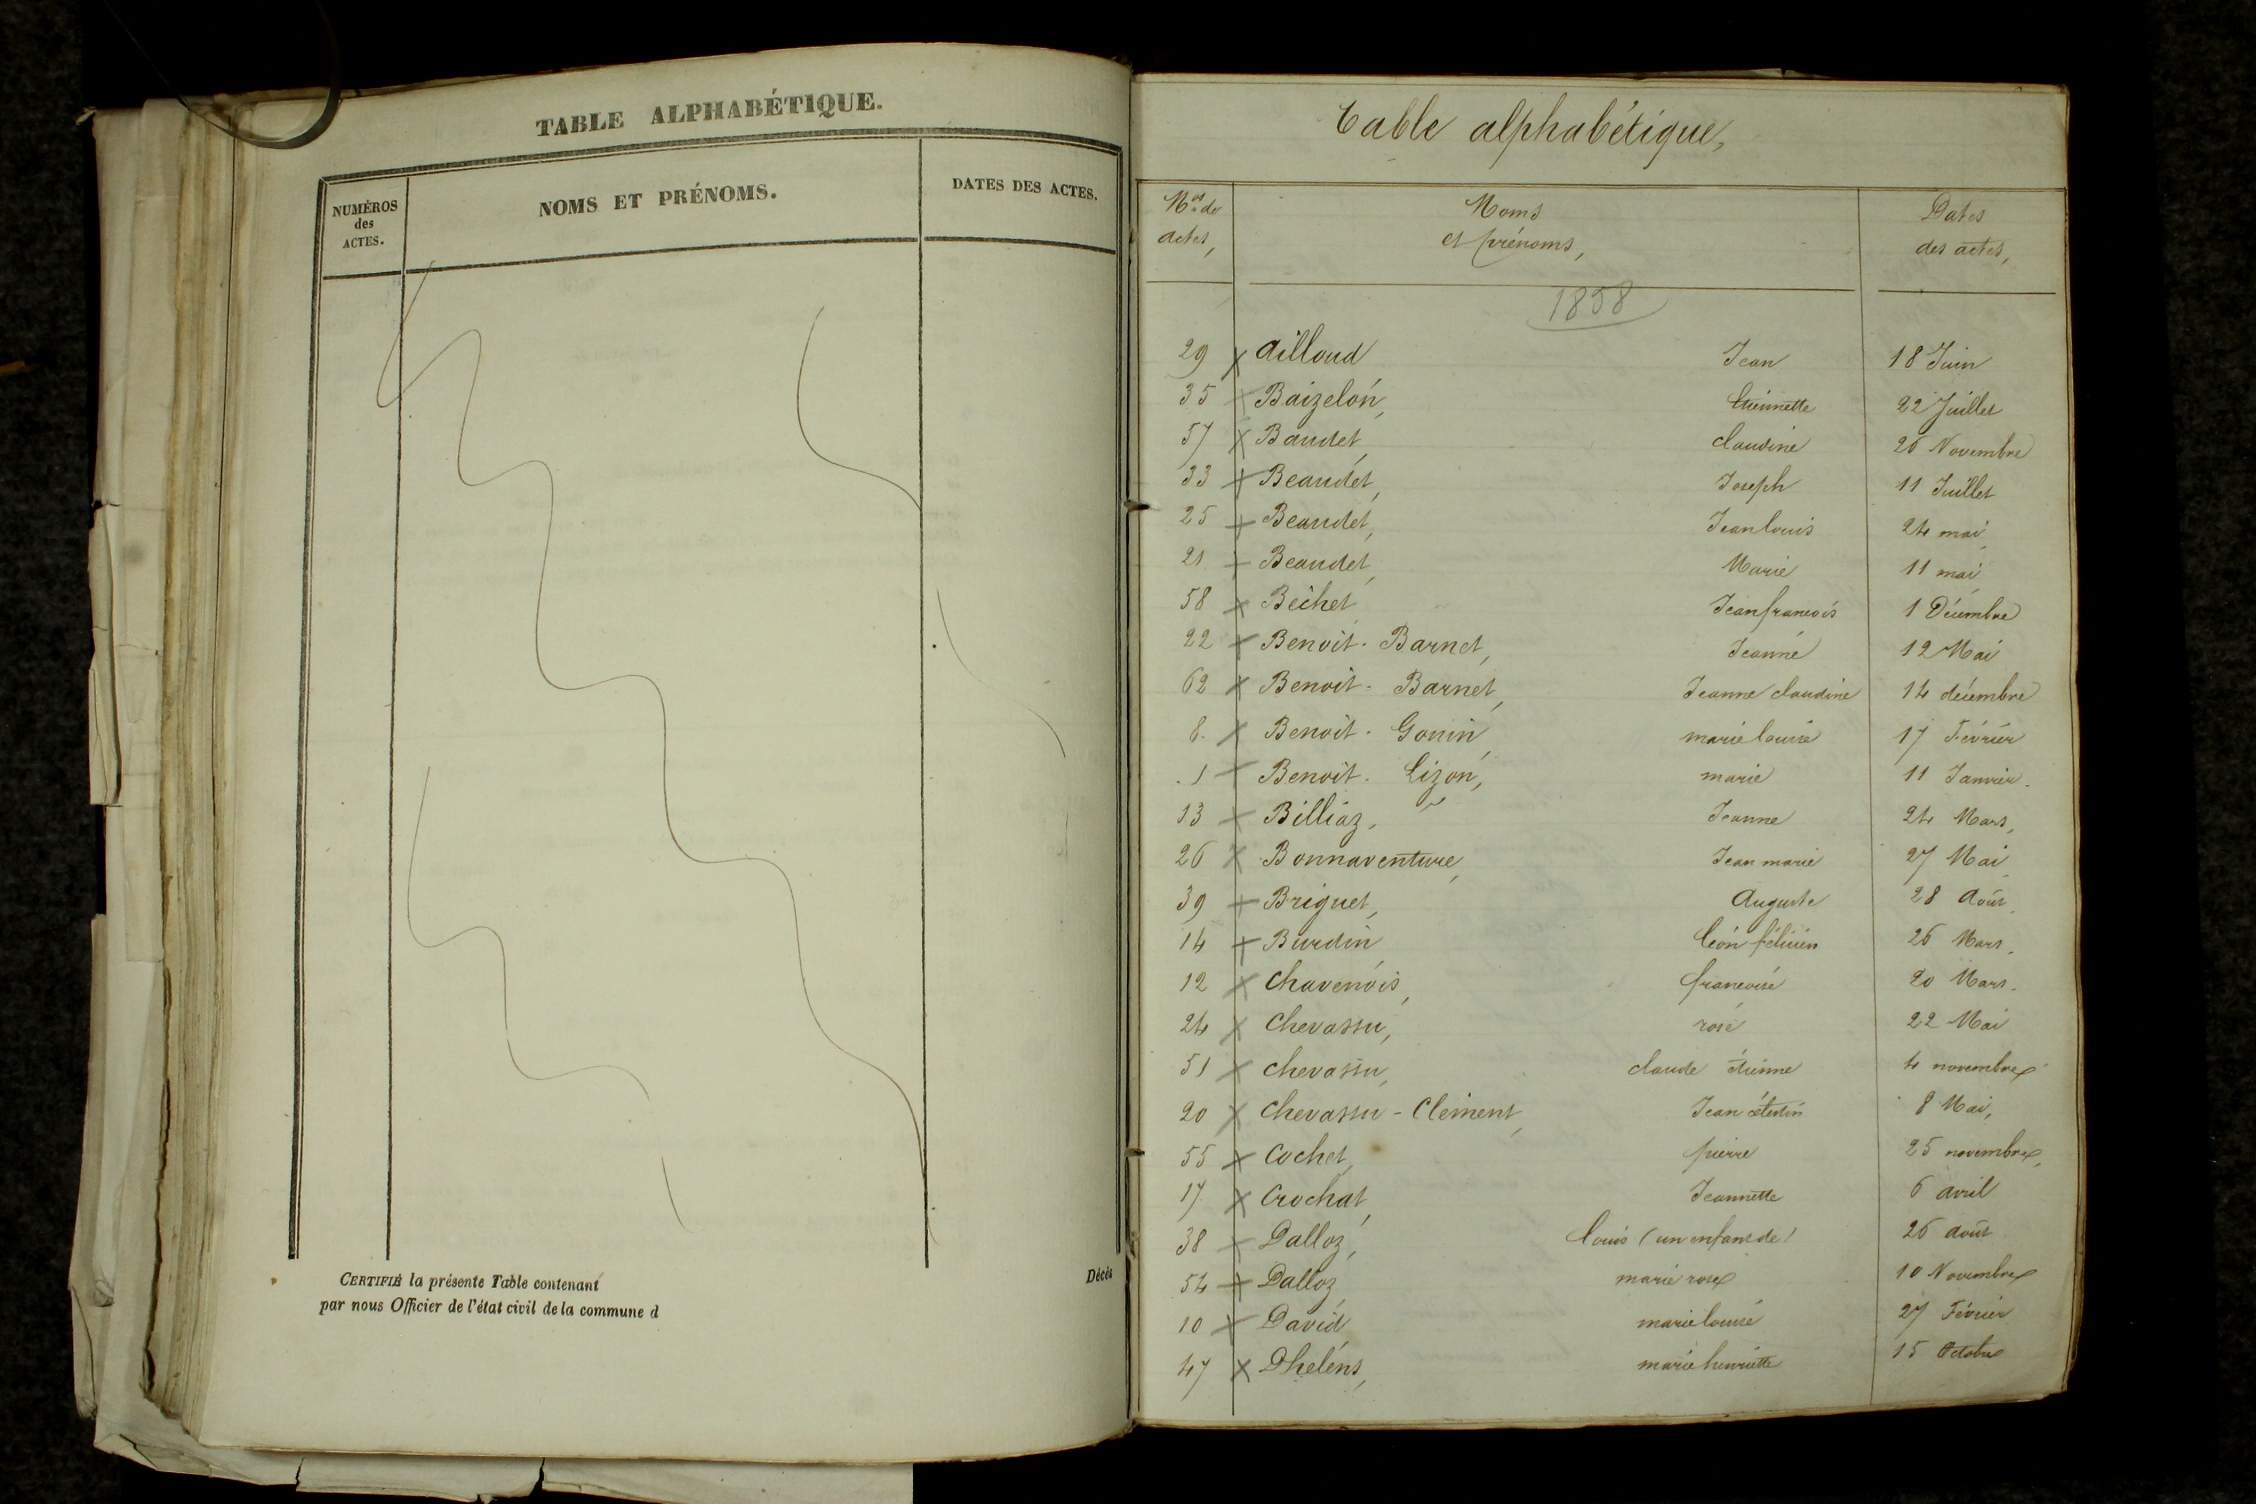 TABLE ALPHABÉTIQUE.
NUMÉROS
des
ACTES.
NOMS ET PRÉNOMS.
DATES DES ACTES.
CERTIFIÉ la présente Table contenant Décès
par nous Officier de l'état civil de la commune d
Table alphabétique,
Nos de
actes,
Noms
et prénoms,
Dates
des actes,
1858
29 Ailloud Jean 18 Juin
35 Baizelon, Etiennette 22 Juillet
57 Baudet, Claudine 26 Novembre
33 Beaudet, Joseph 11 Juillet
25 Beaudet, Jean louis 24 mai
21 Beaudet, Marie 11 mai
58 Bechet, Jean francois 1 Décembre
22 Benoit-Barnet, Jeanne 12 Mai
62 Benoit-Barnet, Jeanne claudine 14 décembre
8. Benoit-Gonin, marie louise 17 Février
.1 Benoit-Lizon, marie 11 Janvier.
13 Billiaz, Jeanne 24 Mars,
26 Bonnaventure, Jean marie 27 Mai
39 Briguet, Auguste 28 Août
14 Burdin, Léon félicien 26 Mars.
12 Chavenois, francoise 20 Mars.
24 Chevassu, rose 22 Mai
51 Chevassu, claude étienne 4 novembre
20 Chevassu-Clément, Jean célestin 8 Mai,
55 Cochet, pierre 25 novembre,
17 Crochat, Jeannette 6 avril
38 Dalloz, Louis (un enfant de) 26 août
54 Dalloz, marie rose 10 Novembre
10 David, marie louise 27 Février
47 Dhelens, marie henriette 15 Octobre